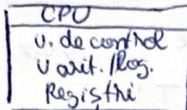 CPU
U. de control
U arit./log.
Registri